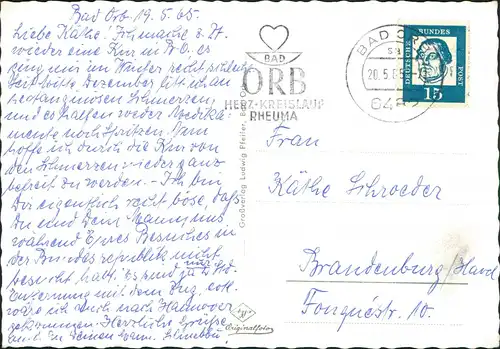 Bad Orb 19.5.65.
Liebe Käthe! Ich mache z. Zt.
wieder eine Kur in B.O. es
ging mir im Winter recht
Seite Dezember litt ich an
Schmerzen,
und es halfen weder Medika-
mente noch Spritzen. Nun
hoffe ich durch die Kur von
den Schmerzen wieder ganz
befreit zu werden. – Ich bin
Dir eigentlich recht böse, daß
Du und Dein Mann uns
während Eures Besuches in
der Bundesrepublik nicht
besucht habt. Es sind ja nur Std.
Entfernung mit dem Zug, evtl.
wäre ich auch nach Hannover
gekommen. Herzliche Grüße
auch an Deinen Mann.
BAD
ORB
HERZ-KREISLAUF
RHEUMA
BAD ORB
20.5.65
6482
DEUTSCHE BUNDESPOST
15
Großverlag Ludwig Pfeifer, Bad Orb
Frau
Käthe Schroeder
Brandenburg/Havel
Fouquéstr. 10.
Originalfoto